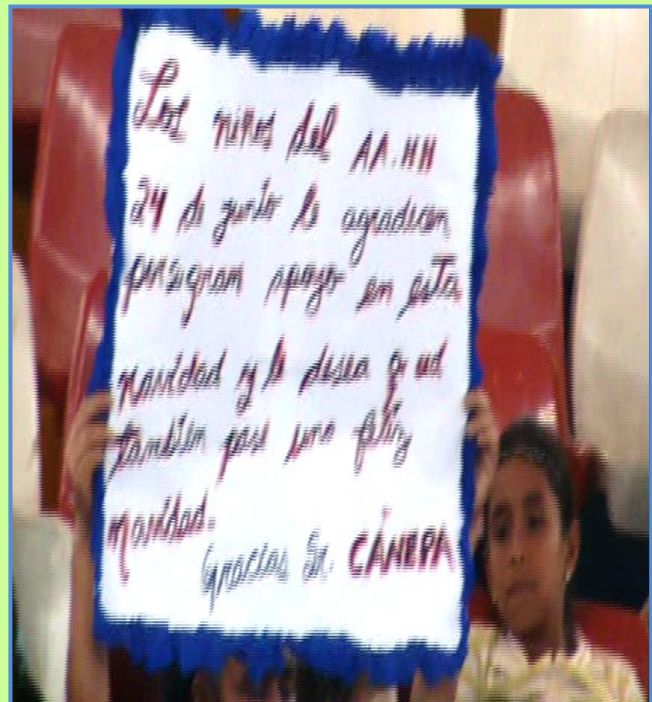 Los niños del AA.HH
24 de junio le agradecen
por su gran apoyo en esta
navidad y le desea q ud
también pase una feliz
navidad.
Gracias Sr. CÁNEPA